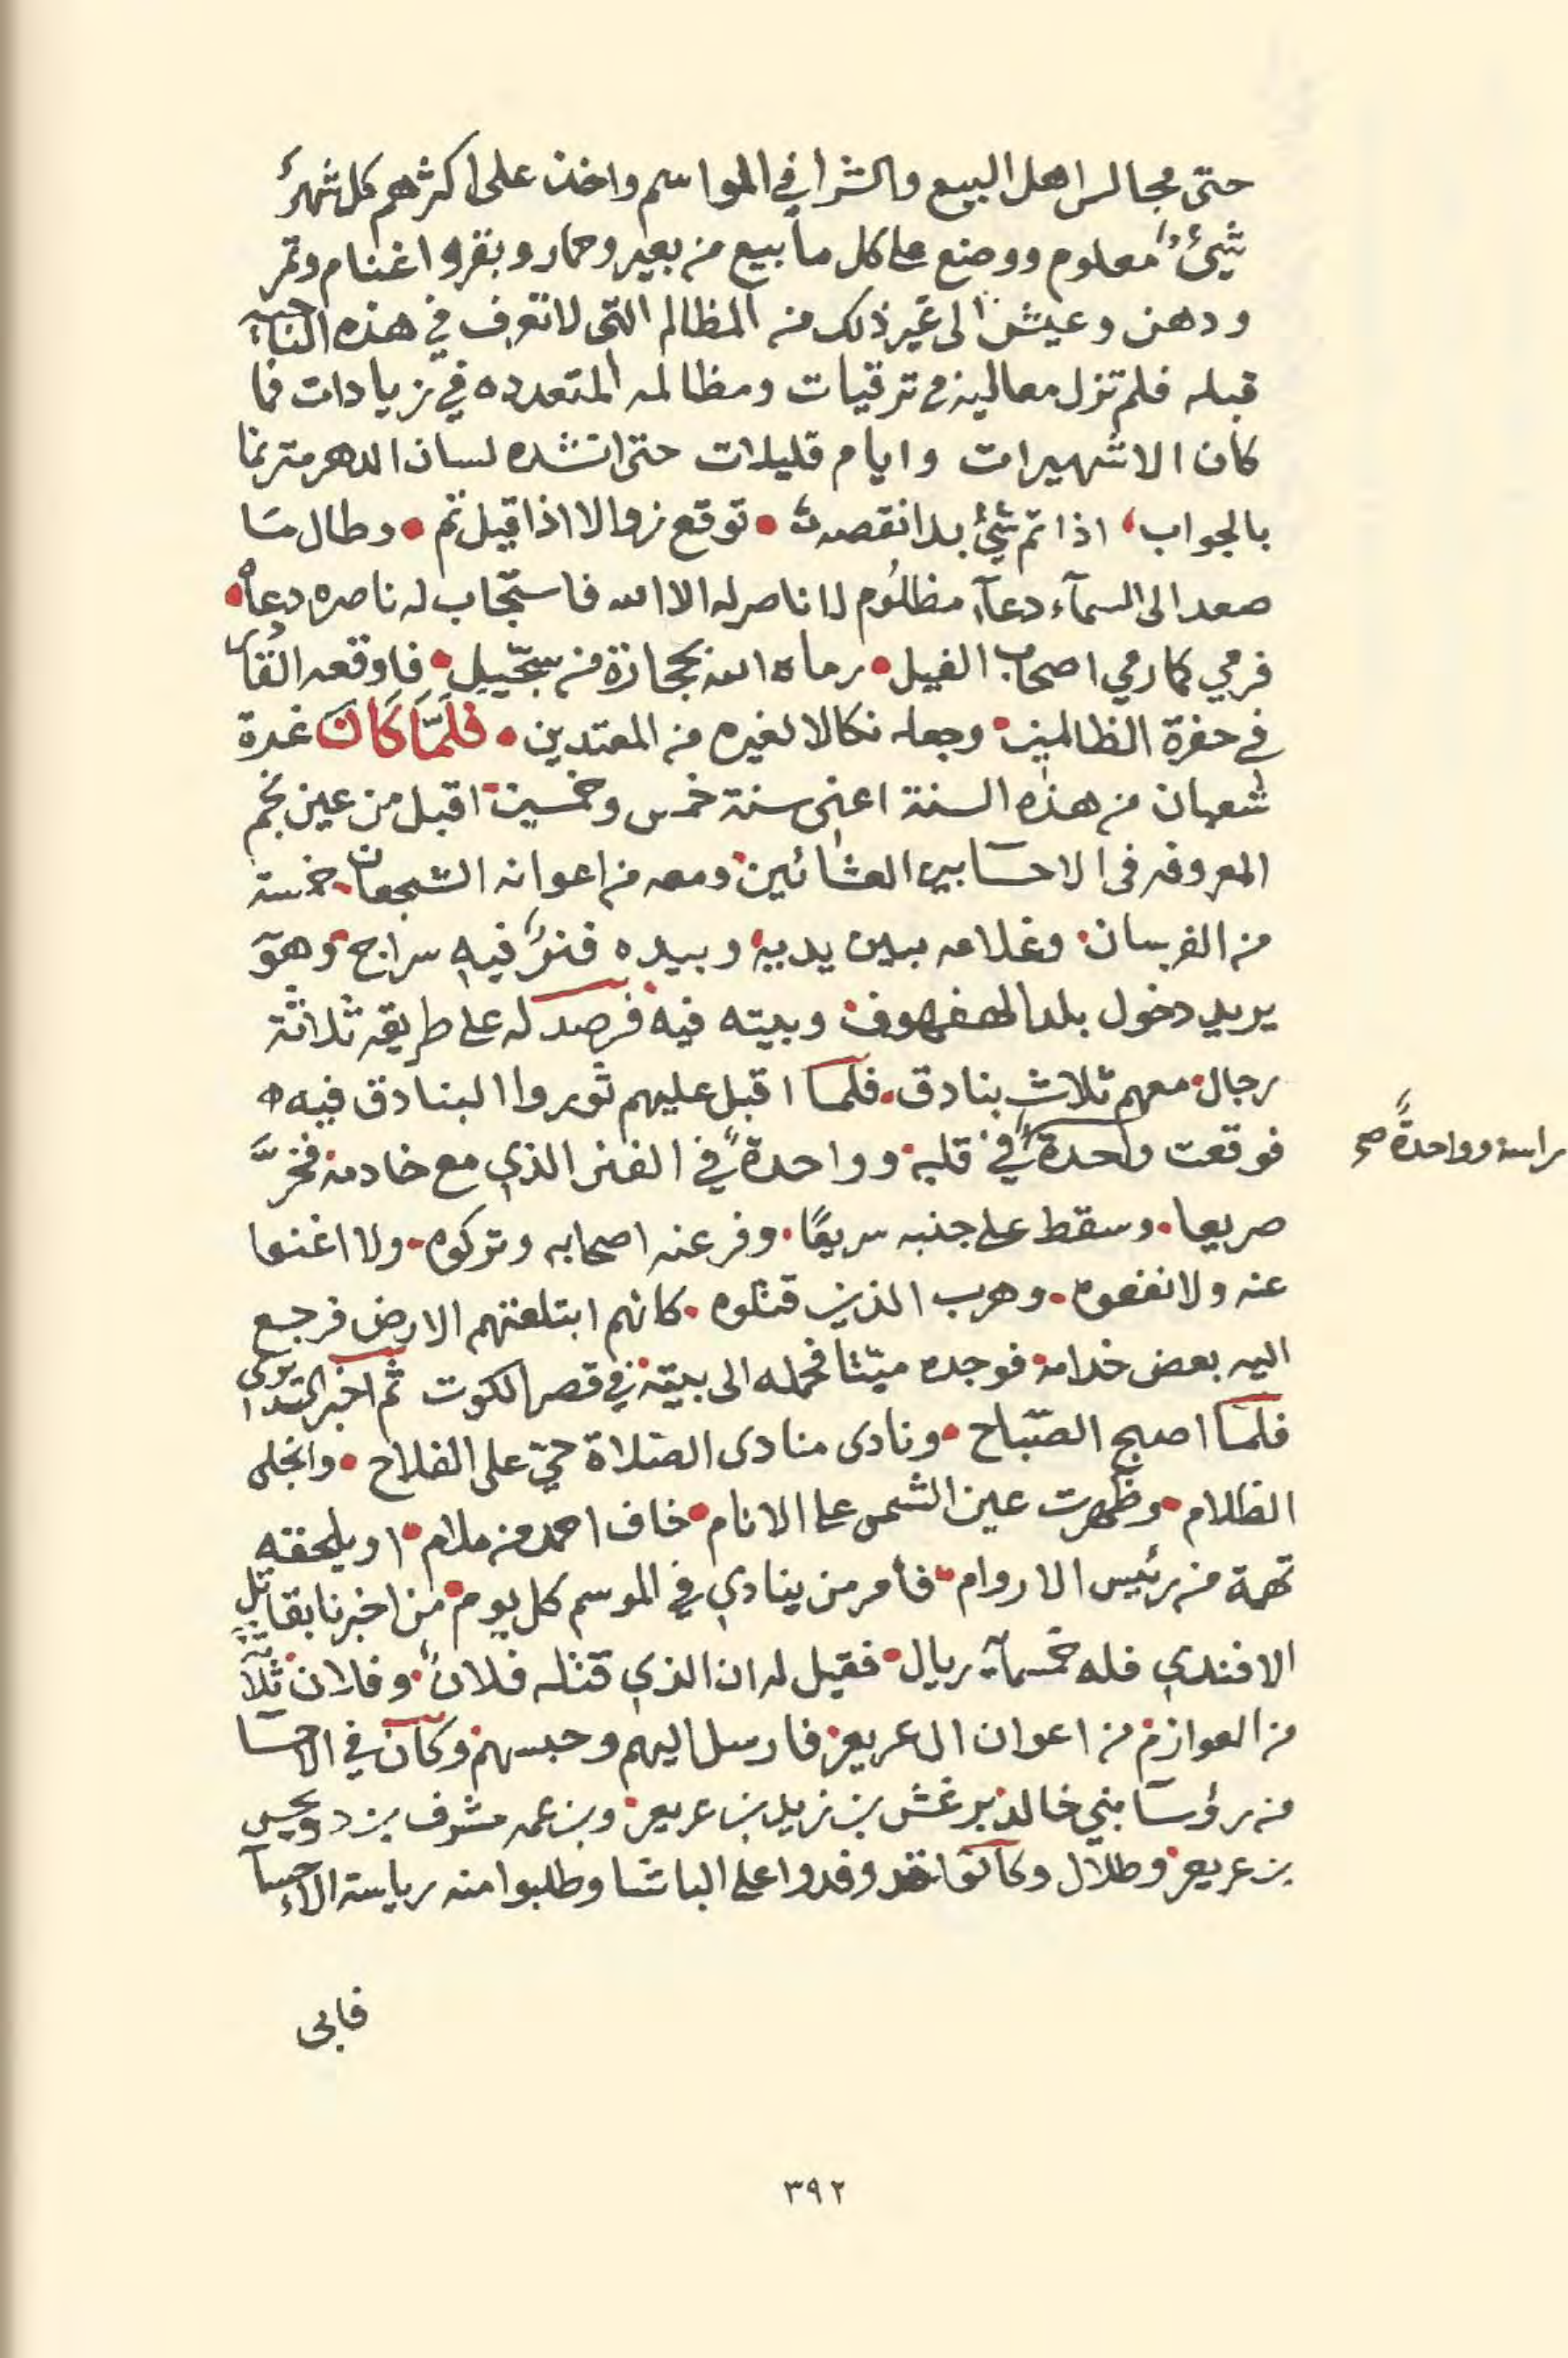 حتى مجالس اهل البيع والشرا في المواسم واخذ على اكثرهم كل شهر
شيئ معلوم ووضع على كل ما بيع من بعير وحمار وبقر واغنام وتمر
ودهن وعيش الى غير ذلك من المظالم التى لا تعرف في هذه الناحيه
قبله فلم تزل معاليه في ترقيات ومظالمه المتعدده في زيادات فما
كان الا شهيرات وايام قليلات حتى انشده لسان الدهر مترنما
بالجواب، اذا تم شيئ بدا نقصه • توقع زوالا اذا قيل تم • وطال ما
صعد الى السمآء دعآء مظلوم لا ناصر له الا الله فاستجاب له ناصره دعاه •
فرمي كما رمي اصحاب الفيل • رماه الله بحجارة من سجيل • فاوقعه
في حفرة الظالمين • وجعله نكالا لغيره من المعتدين • فلما كان غرة
شعبان من هذه السنة اعنى سنة خمس وخمسين اقبل من عين نجم
المعروفه في الاحسا بين العشائين • ومعه من اعوانه الشجعان • خمسة
من الفرسان • وغلامه بين يديه • وبيده فنر فيه سراج • وهو
يريد دخول بلد الهفهوف • وبيته فيه • فرصد له على طريقه ثلاثة
رجال • معهم ثلاث بنادق • فلما اقبل عليهم ثوروا البنادق فيه
فوقعت واحدة في قلبه • وواحدة في الفنر الذي مع خادمه فخر
راسه وواحدة صح
صريعا • وسقط على جنبه سريعا • وفر عنه اصحابه وتركوه • ولا اغنوا
عنه ولا نفعوه • وهرب الذين قتلوه • كانهم ابتلعتهم الارض فرجع
اليه بعض خدامه • فوجده ميتا فحمله الى بيته في قصر الكوت ثم اخبر السديرى
فلما اصبح الصباح • ونادى منادى الصلاة حي على الفلاح • وانجلى
الظلام • وظهرت عين الشمس على الانام • خاف احمد من ملام • او يلحقه
تهمة من رئيس الاروام • فأمر من ينادي في الموسم كل يوم • من اخبرنا بقاتل
الافندي فله خمسمآية ريال • فقيل له ان الذي قتله فلان • وفلان • ثلاثة
من العوازم • من اعوان ال عريعر • فارسل اليهم وحبسهم • وكان في الاحسا
من رؤسا بني خالد • برغش بن زيد بن عريعر • وبن عمه مشرف بن دويحس
بن عريعر • وطلال وكانوا قد وفدوا على الباشا وطلبوا منه رياسة الاحسآء
فابى
٣٩٢